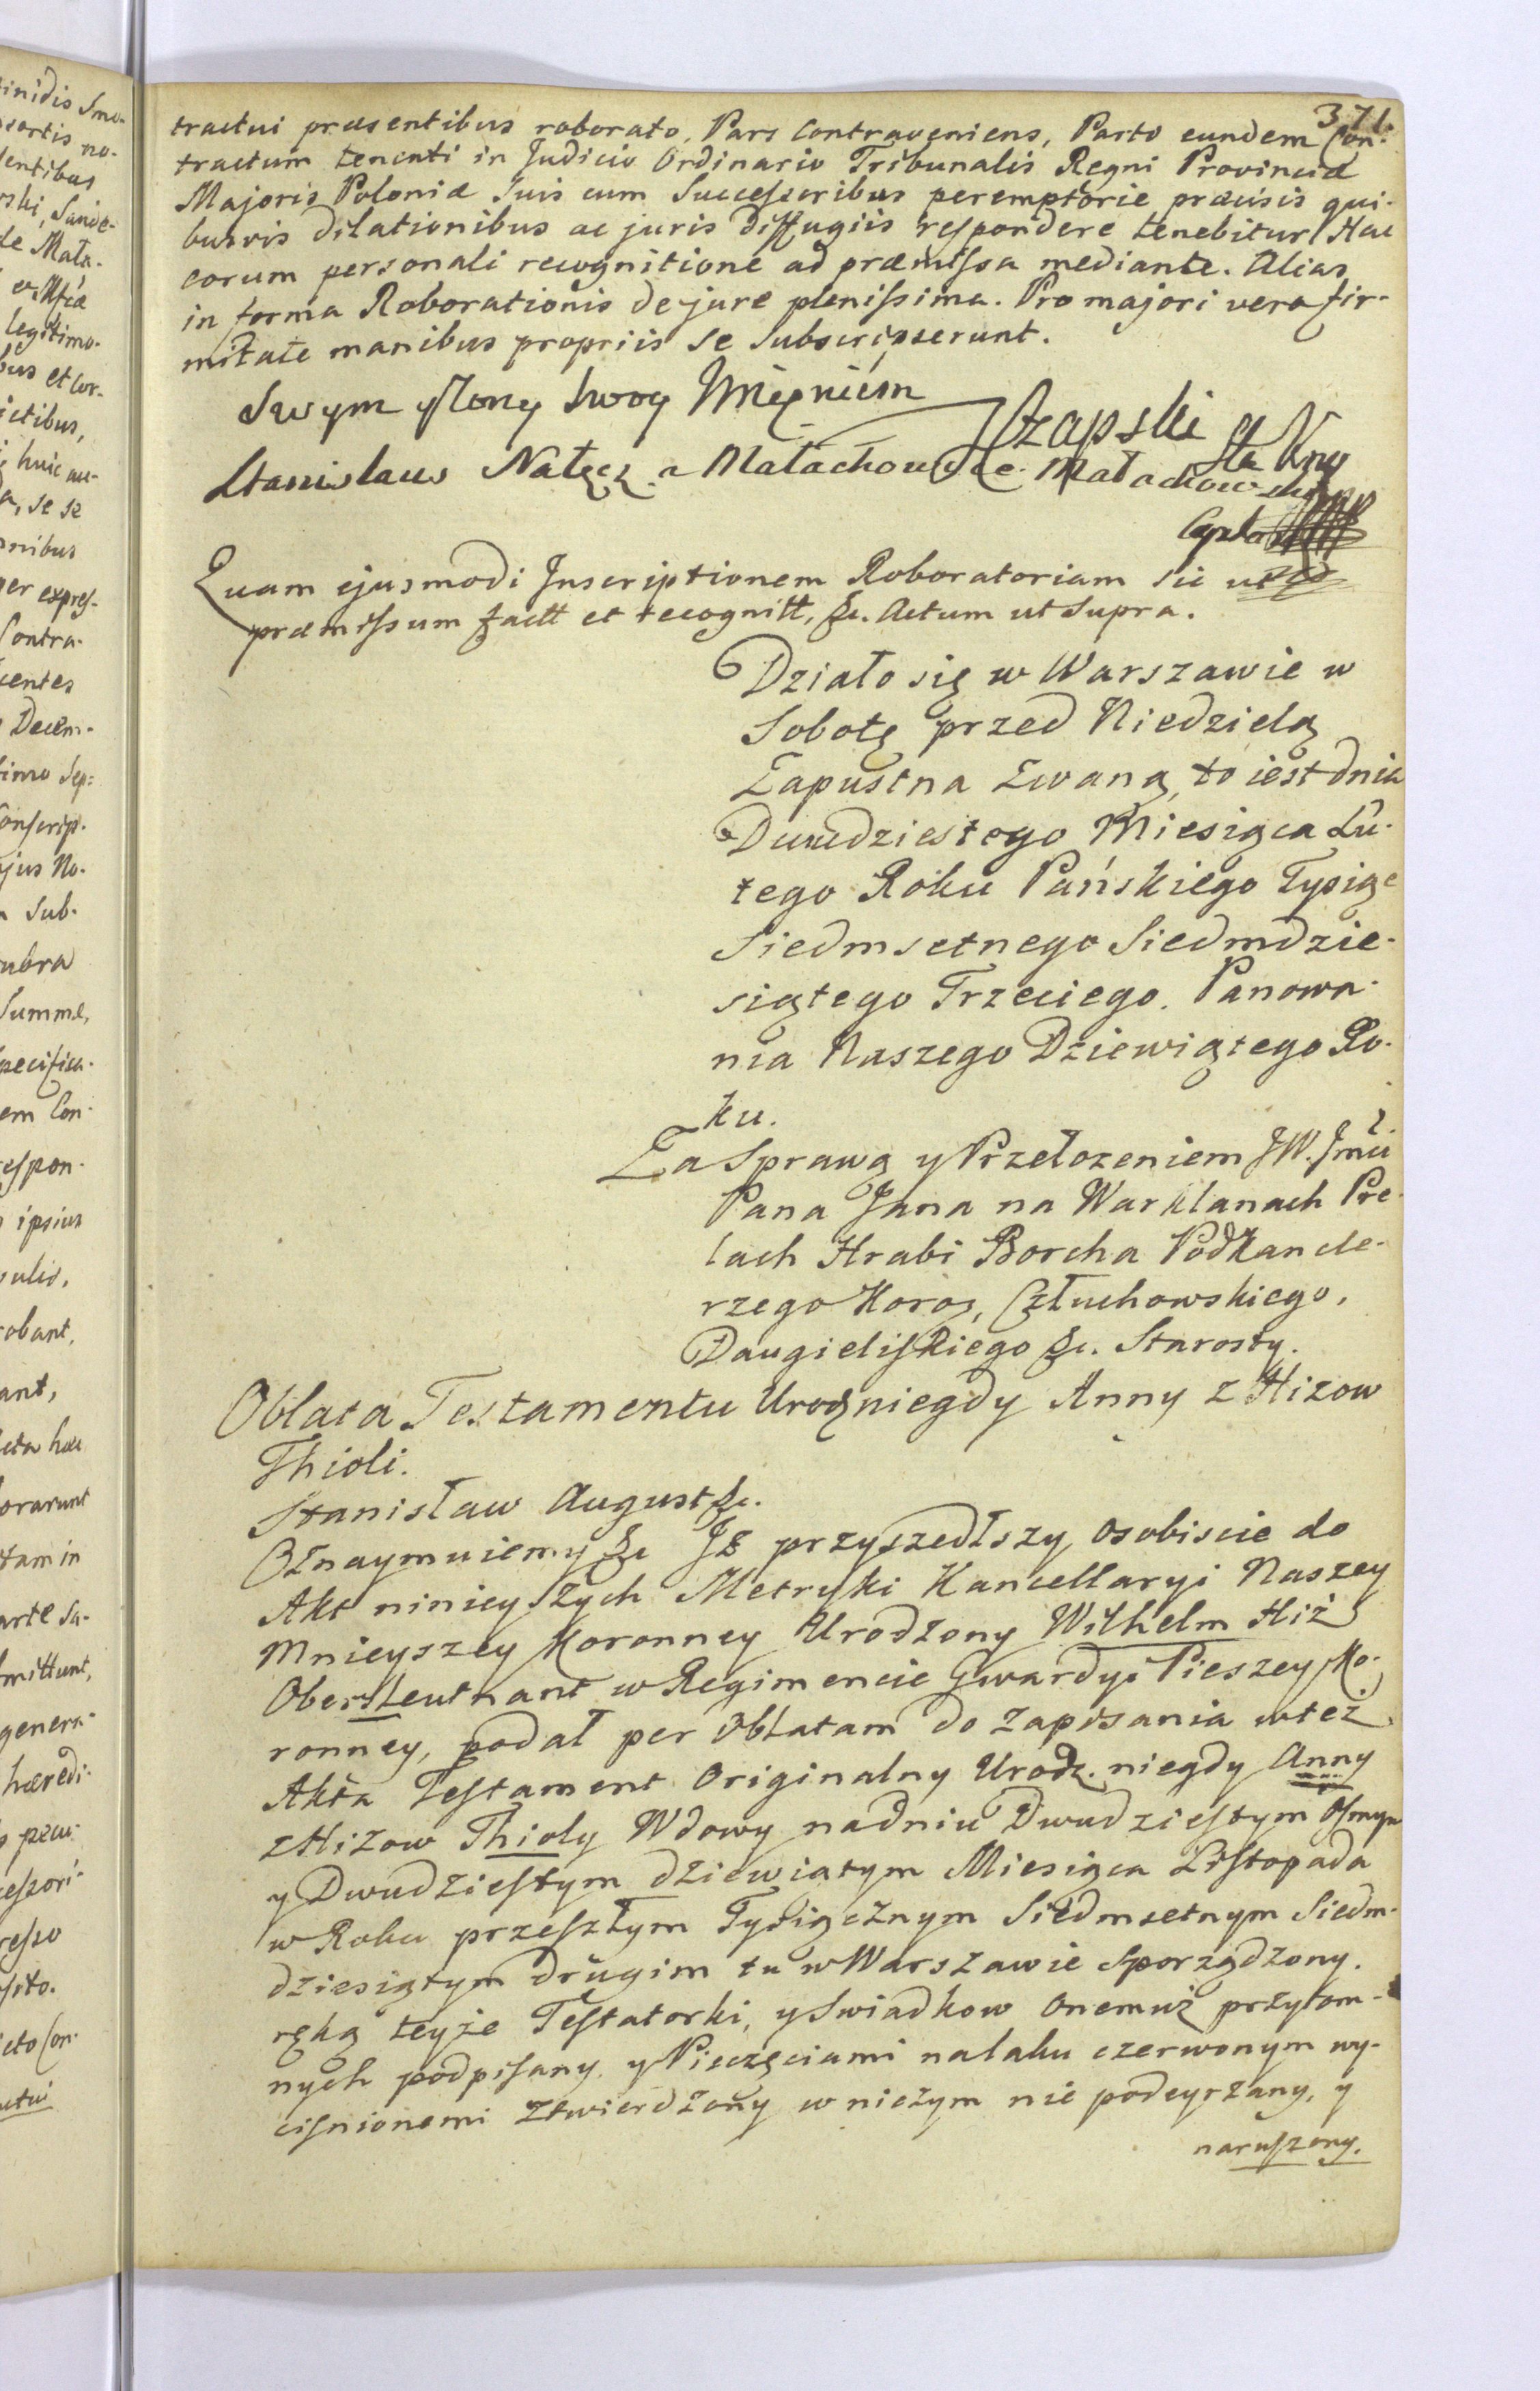 371.
tractui præsentibus roborato, Pars Contraveniens, Parti eundem Con-
tractum tenenti in Judicio Ordinario Tribunalis Regni Provinciæ
Majoris Poloniæ Suis cum Successoribus peremptorie præcisis qui-
busvis dilationibus ac juris diffugiis respondere tenebitur Hac
eorum personali recognitione ad præmissa mediante. Alias
in forma Roborationis de jure plenissima. Pro majori vero fir-
mitate manibus propriis se subscripserunt.
Swym y Żony Swoy Imięniem Czapski
Stanislaus Nałęcz a Małachowice Małachowski
Quam ejusmodi Inscriptionem Roboratoriam sic ut
præmissum factt et recognitt, &c. Actum ut Supra.
Działo się w Warszawie w
Sobotę przed Niedzielą
Zapustna Zwaną, to iest dnia
Dwudziestego Miesiąca Lu-
tego Roku Pańskiego Tysiąc
Siedmsetnego Siedmdzie-
siątego Trzeciego. Panowa-
nia Naszego Dziewiątego Ro-
ku.
Za Sprawą y Przełozeniem JW. Jmci
Pana Jana na Warklanach Pre-
lach Hrabi Borcha Podkancle-
rzego Koroꝫ, Człuchowskiego,
Daugieliskiego &c. Starosty.
Oblata Testamentu Uroꝫ niegdy Anny z Hizow
Thioli.
Stanisław August &c.
Oznaymuiemy &c Iż przyszedłszy osobiscie do
Akt ninieyszych Metryki Kancellaryi Naszey
Mnieyszey Koronney Urodzony Wilhelm Hiż
Oberstleutnant w Regimencie Gwardyi Pieszey Ko-
ronney, podał per Oblatam do zapisania w też
Akta Testament Originalny Urodz. niegdy Anny
z Hizow Thioly Wdowy na dniu Dwudziestym Osmym
y Dwudziestym dziewiątym Miesiąca Listopada
w Roku przeszłym Tysiącznym Siedmsetnym Siedm-
dziesiątym drugim tu w Warszawie sporządzony.
ręką teyże Testatorki, y Swiadkow Onemuż przytom-
nych podpisany, y Pieczęciami na laku czerwonym wy-
cisnionemi ztwierdzony w niczym nie podeyrzany, y
naruszony.